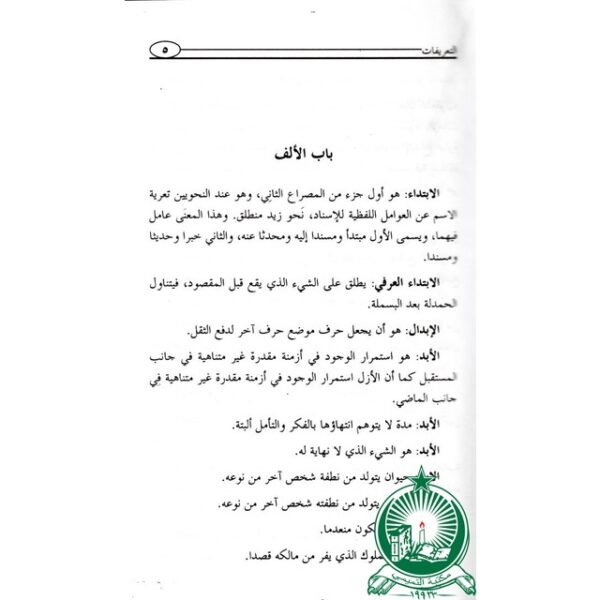 التعريفات
٥
باب الألف
الابتداء: هو أول جزء من المصراع الثاني، وهو عند النحويين تعرية
الاسم عن العوامل اللفظية للإسناد، نَحو زيد منطلق. وهذا المعنَى عامل
فيهما، ويسمى الأول مبتدأ ومسندا إليه ومحدثا عنه، والثاني خبرا وحديثا
ومسندا.
الابتداء العرفي: يطلق على الشيء الذي يقع قبل المقصود، فيتناول
الحمدلة بعد البسملة.
الإبدال: هو أن يجعل حرف موضع حرف آخر لدفع الثقل.
الأبد: هو استمرار الوجود في أزمنة مقدرة غير متناهية في جانب
المستقبل كما أن الأزل استمرار الوجود في أزمنة مقدرة غير متناهية فِي
جانب الماضي.
الأبد: مدة لا يتوهم انتهاؤها بالفكر والتأمل ألبتة.
الأبد: هو الشيء الذي لا نهاية له.
حيوان يتولد من نطفة شخص آخر من نوعه.
يتولد من نطفته شخص آخر من نوعه.
يكون منعدما.
الذي يفر من مالكه قصدا.
مكتبة
١٩٩٢